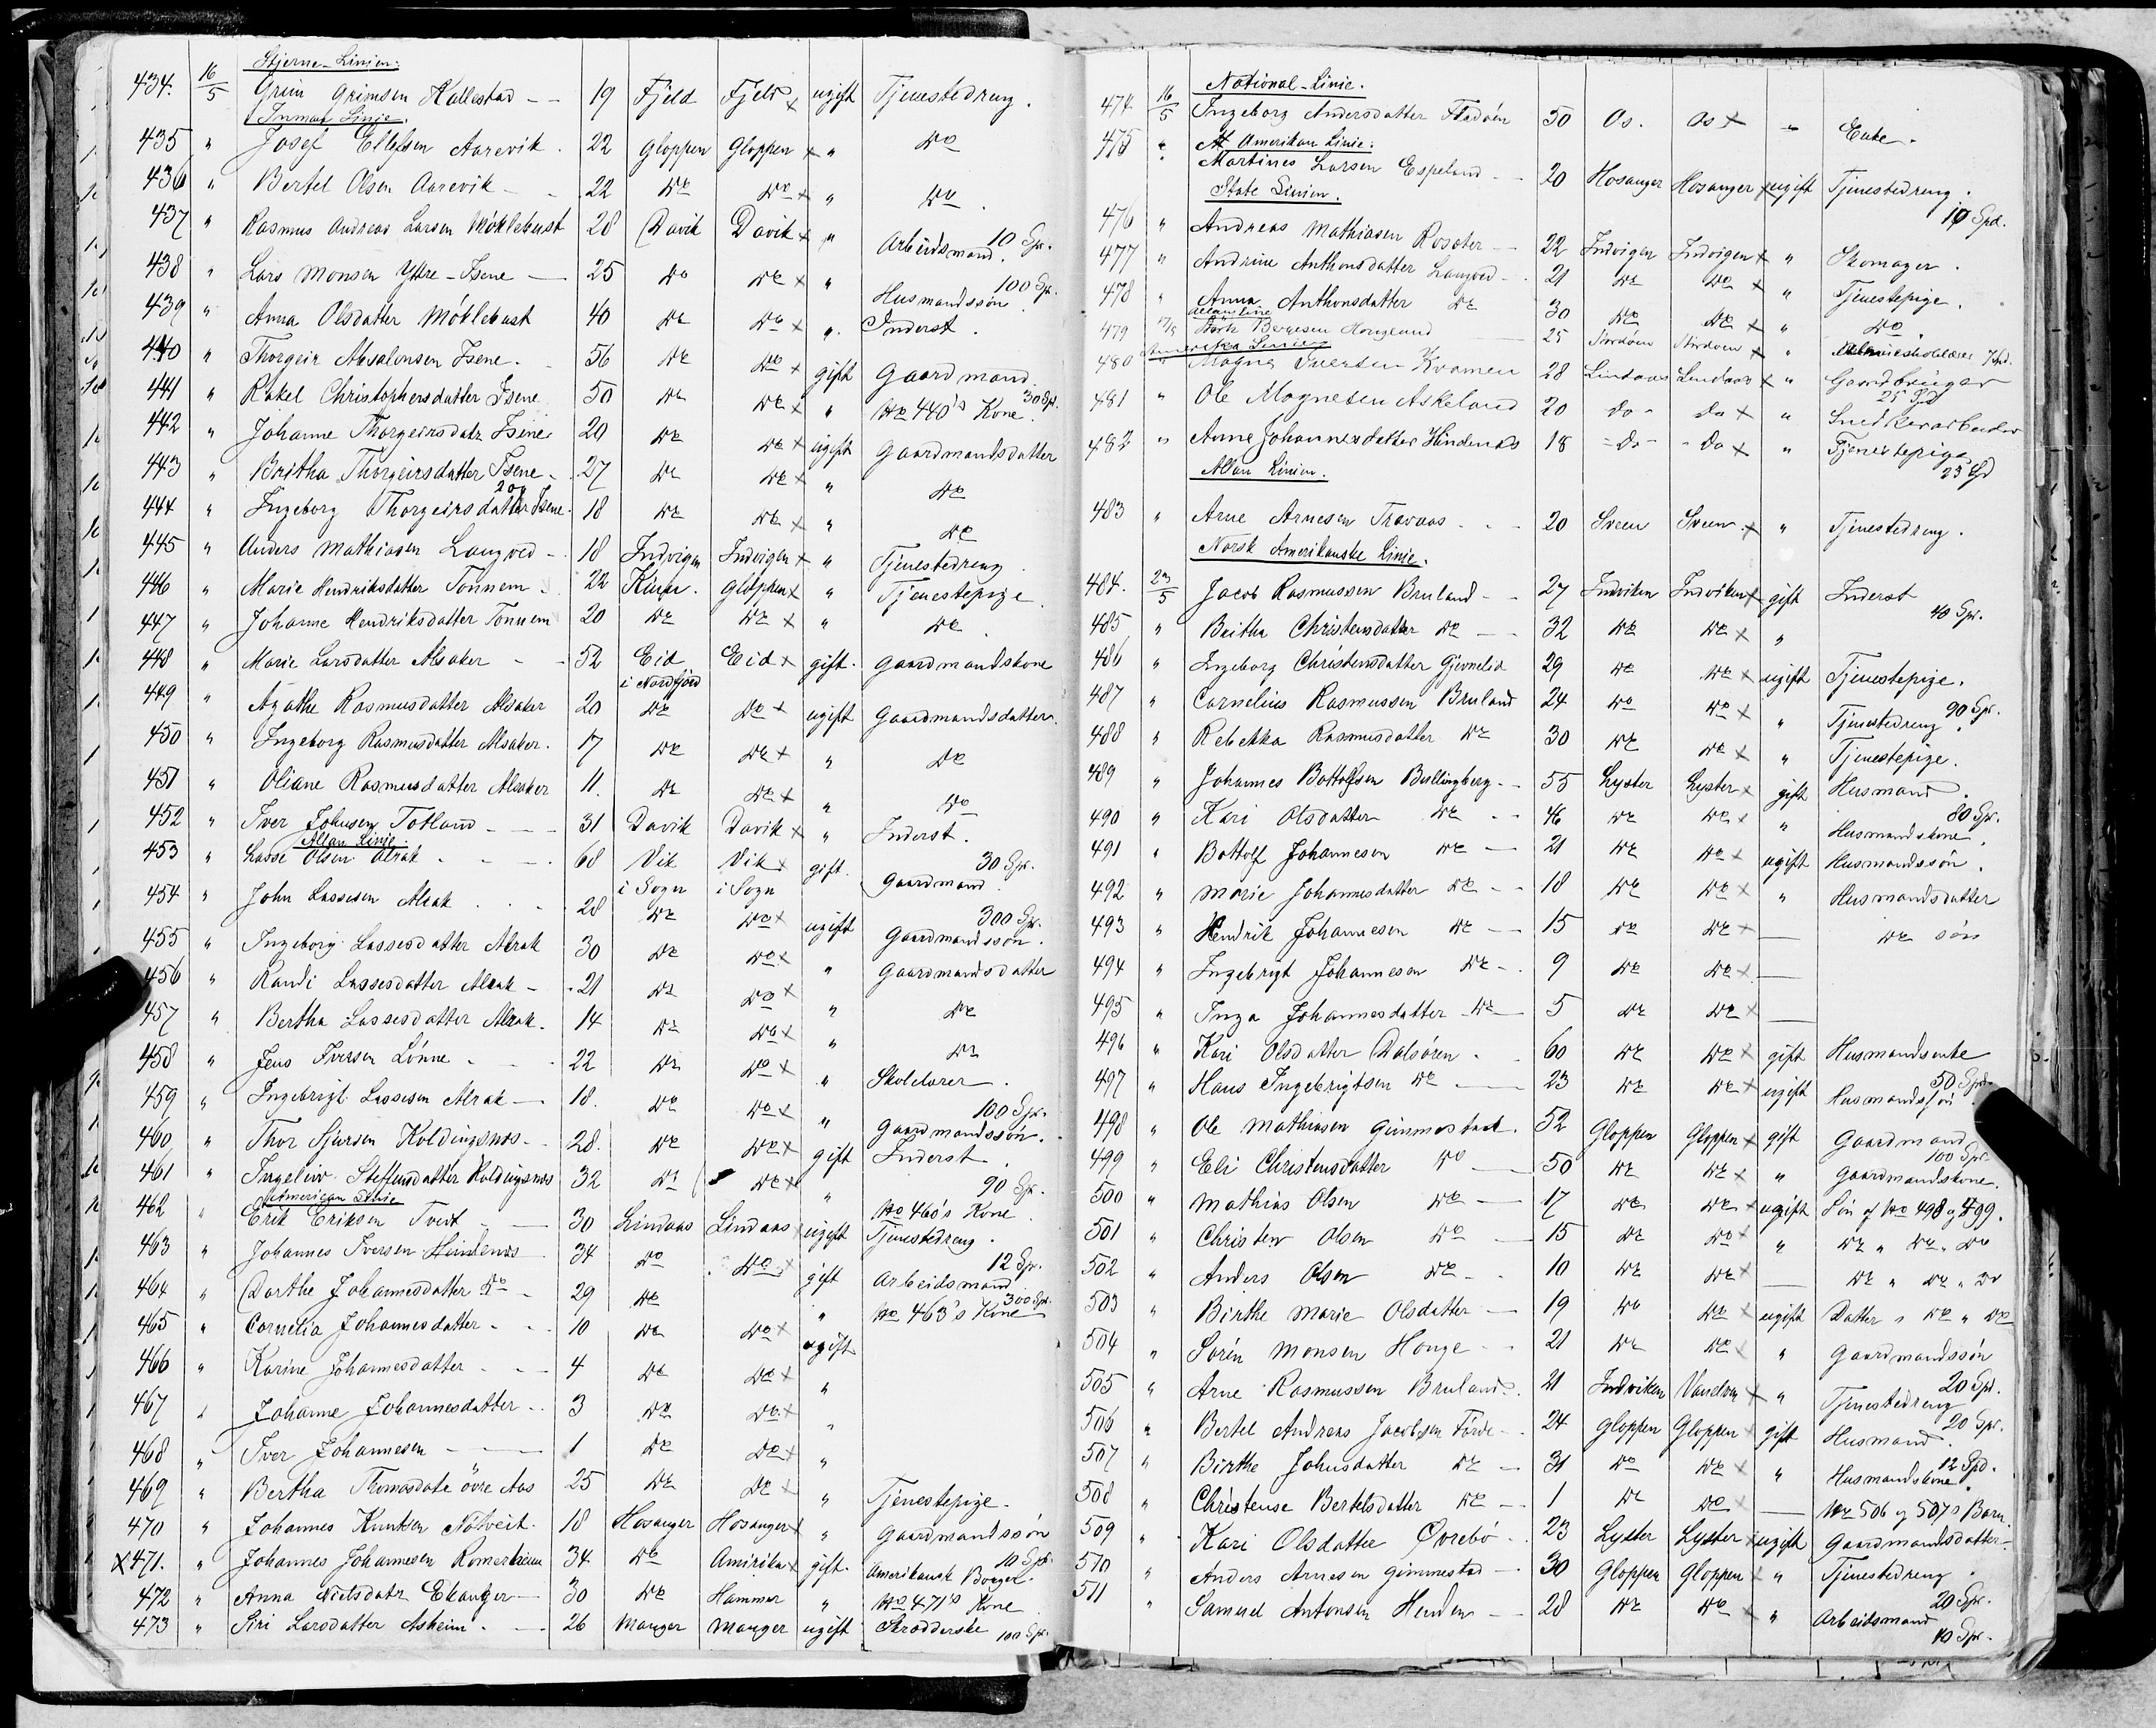 Stjerne-Linien:
434. 16/5 Grim Grimsen Kallestad -- 19 Fjeld Fjeld x ugift Tjenestedreng.
Inman Linie.
435 " Josef Ellefsen Aarevik. 22 Gloppen Gloppen x " Do
436 " Bertel Olsen Aarevik - 22 Do Do x " Do.
437 " Rasmus Andreas Larsen Möklebust 28 Davik Davik x " Arbeidsmand. 10 Spr.
438 " Lars Monsen Yttre-Isene - 25 Do Do x " Husmandssøn 100 Spr.
439 " Anna Olsdatter Möklebust 40 Do Do x " Inderst.
440 " Thorgeir Absalonsen Isene. 56 Do Do x gift Gaardmand
441 " Rakel Christophersdatter Isene 50 Do Do x " No 440's Kone. 30 Spr.
442 " Johanne Thorgeirsdatr Isene 20 Do Do x ugift Gaardmandsdatter
443 " Britha Thorgeirsdatter Isene. 27 Do Do x " Do
444 " Ingeborg Thorgeirsdatter Isene. 18 Do Do x " Do
445 " Anders Mathiasen Langved - 18 Indvigen Indvigen x " Tjenestedreng.
446 " Marie Hendriksdatter Tonnem. 22 Kinn. Gloppen x " Tjenestepige.
447 " Johanne Hendriksdatter Tonnem 20 Do Do x " Do.
448 " Marie Larsdatter Alsaker - 52 Eid i Nordfjord Eid x gift. Gaardmandskone
449 " Agathe Rasmusdatter Alsaker 20 Do Do x ugift Gaardmandsdatter.
450 " Ingeborg Rasmusdatter Alsaker. 17 Do Do x " Do
451 " Oliane Rasmusdatter Alsaker 11. Do Do x " Do
452 " Iver Johnsen Totland - 31 Davik Davik x " Inderst.
Allan Linie.
453 " Lasse Olsen Alrak - 68 Vik i Sogn Vik x i Sogn gift. Gaardmand. 30 Spr.
454 " John Lassesen Alrak . . 28 Do Do x ugift Gaardmandssøn. 300 Spr.
455 " Ingeborg Lassesdatter Alrak 30 Do Do x " Gaardmandsdatter
456 " Randi Lassesdatter Alrak - 21 Do Do x " Do
457 " Bertha Lassesdatter Alrak. 14 Do Do x " Do
458 " Jens Iversen Lönne - 22 Do Do x " Skolelærer.
459 " Ingebrigt Lassesen Alrak - 18. Do Do x " Gaardmandssøn. 100 Spr.
460 " Thor Sjursen Holdingsnes. 28. Do Do x gift Inderst.
461 " Ingeliv Steffensdatter Holdingsnes 32 Do Do x " No 460's Kone 90 Spr.
American Linie
462 " Erik Eriksen Tveit - 30 Lindaas Lindaas x ugift Tjenestedreng.
463 " Johannes Iversen Hindenes 34 Do Do x gift Arbeidsmand 12 Spr.
464 " Dorthe Johannesdatter Do - 29 Do " No 463's Kone 300 Spr.
465 " Cornelia Johannesdatter - 10 Do Do x ugift
466 " Karine Johannesdatter - 4 Do Do x "
467 " Johanne Johannesdatter - 3 Do Do x "
468 " Iver Johannesen - 1 Do Do x "
469 " Bertha Thomasdatr övre Aas 25 Do Do x " Tjenestepige.
470 " Johannes Knutsen Nötveit. 18 Hosanger Hosanger x " Gaardmandssøn
x471. " Johannes Johannesen Romarheim 34 Do Amerika x gift. Amerikansk Borger. 10 Spr.
472 " Anna Nielsdatr Ekanger - 30 Do Hammer " No 471's Kone
473 " Siri Larsdatter Asheim. - 26 Manger Manger ugift Skrædderske 100 Spr.
National-Linie.
474. 16/5 Ingeborg Andersdatter Fladöen 50 Os. Os x " Enke.
475 " Amerikan Linie:
Martines Larsen Espeland - 20 Hosanger Hosanger x ugift Tjenestedreng. 10 Spd.
State Linien.
476 " Andreas Mathiasen Roseter - 22 Indvigen Indvigen x " Skomager.
477 " Andrine Anthonsdatter Langved - 21 Do Do x " Tjenestepige.
478 " Anna Anthonsdatter Do 30 Do Do x " Do.
Allan Line
479 17/5 Bergesen Hougland 25
Amerika Linien
480 " Magne Iversen Kvamen 28 Lindaas Lindaas x " Gaardbruger
481 " Ole Magnesen Askeland 20 Do - Do x " Snedkerarbeider 25 Spd
482 " Anne Johannesdatter Hindenes 18 - Do - Do x " Tjenestepige 25 Spd
Allan Linien.
483 " Arne Arnesen Travaas - - 20 Sveen Sveen x " Tjenestedreng.
Norsk Amerikanske Linie.
484. 23/5 Jacob Rasmussen Bruland - 27 Indviken Indviken x gift Inderst 40 Spr.
485 " Britha Christensdatter Do - 32 Do Do x "
486 " Ingeborg Christensdatter Gjevnelid 29 Do Do x ugift Tjenestepige.
487 " Cornelius Rasmussen Bruland 24 Do Do x " Tjenestedreng. 90 Spr.
488 " Rebekka Rasmusdatter Do 30 Do Do x " Tjenestepige.
489 " Johannes Bottolfsen Bullingberg - 55 Lyster Lyster x gift Husmand.
490 " Kari Olsdatter Do - 46 Do Do x " Husmandskone. 80 Spr.
491 " Bottolf Johannesen Do - 21 Do Do x ugift Husmandssøn.
492 " Marie Johannesdatter Do - 18 Do Do x " Husmandsdatter
493 " Hendrik Johannesen Do - 15 Do Do x — Do søn
494 " Ingebrigt Johannesen Do - 9 Do Do x —
495 " Inga Johannesdatter Do - 5 Do Do x —
496 " Kari Olsdatter Dalsören - 60 Do Do x gift Husmandsenke
497 " Hans Ingebrigtsen Do - 23 Do Do x ugift Husmandssøn. 50 Spd.
498 " Ole Mathiasen Gimmestad. 52 Gloppen Gloppen x gift Gaardmand
499 " Eli Christensdatter Do - 50 Do Do x " Gaardmandskone. 100 Spr.
500 " Mathias Olsen Do - 17 Do Do x ugift Søn af No 498 og 499.
501 " Christen Olsen Do - 15 Do Do x " Do " Do " Do
502 " Anders Olsen Do - 10 Do Do x — Do " Do " Do
503 " Birthe Marie Olsdatter - 19 Do Do x ugift Datter " Do " Do
504 " Sörén Monsen Houge - 21 Do Do x " Gaardmandssøn
505 " Arne Rasmussen Bruland. 21 Indviken x " Tjenestedreng 20 Spd.
506 " Bertel Andreas Jacobsen Förde - 24 Gloppen Gloppen x gift Husmand. 20 Spr.
507 " Birthe Johnsdatter Do - 31 Do Do x " Husmandskone. 12 Spd.
508 " Christense Bertelsdatter Do - 1 Do Do x — No 506 og 507s Barn.
509 " Kari Olsdatter Øvrebö - 23 Lyster Lyster x ugift Gaardmandsdatter.
510 " Anders Arnesen Gimmestad - 30 Gloppen Gloppen x " Tjenestedreng.
511 " Samuel Antonsen Henden - 28 Do Do x " Arbeidsmand 20 Spr.
10 Spr.